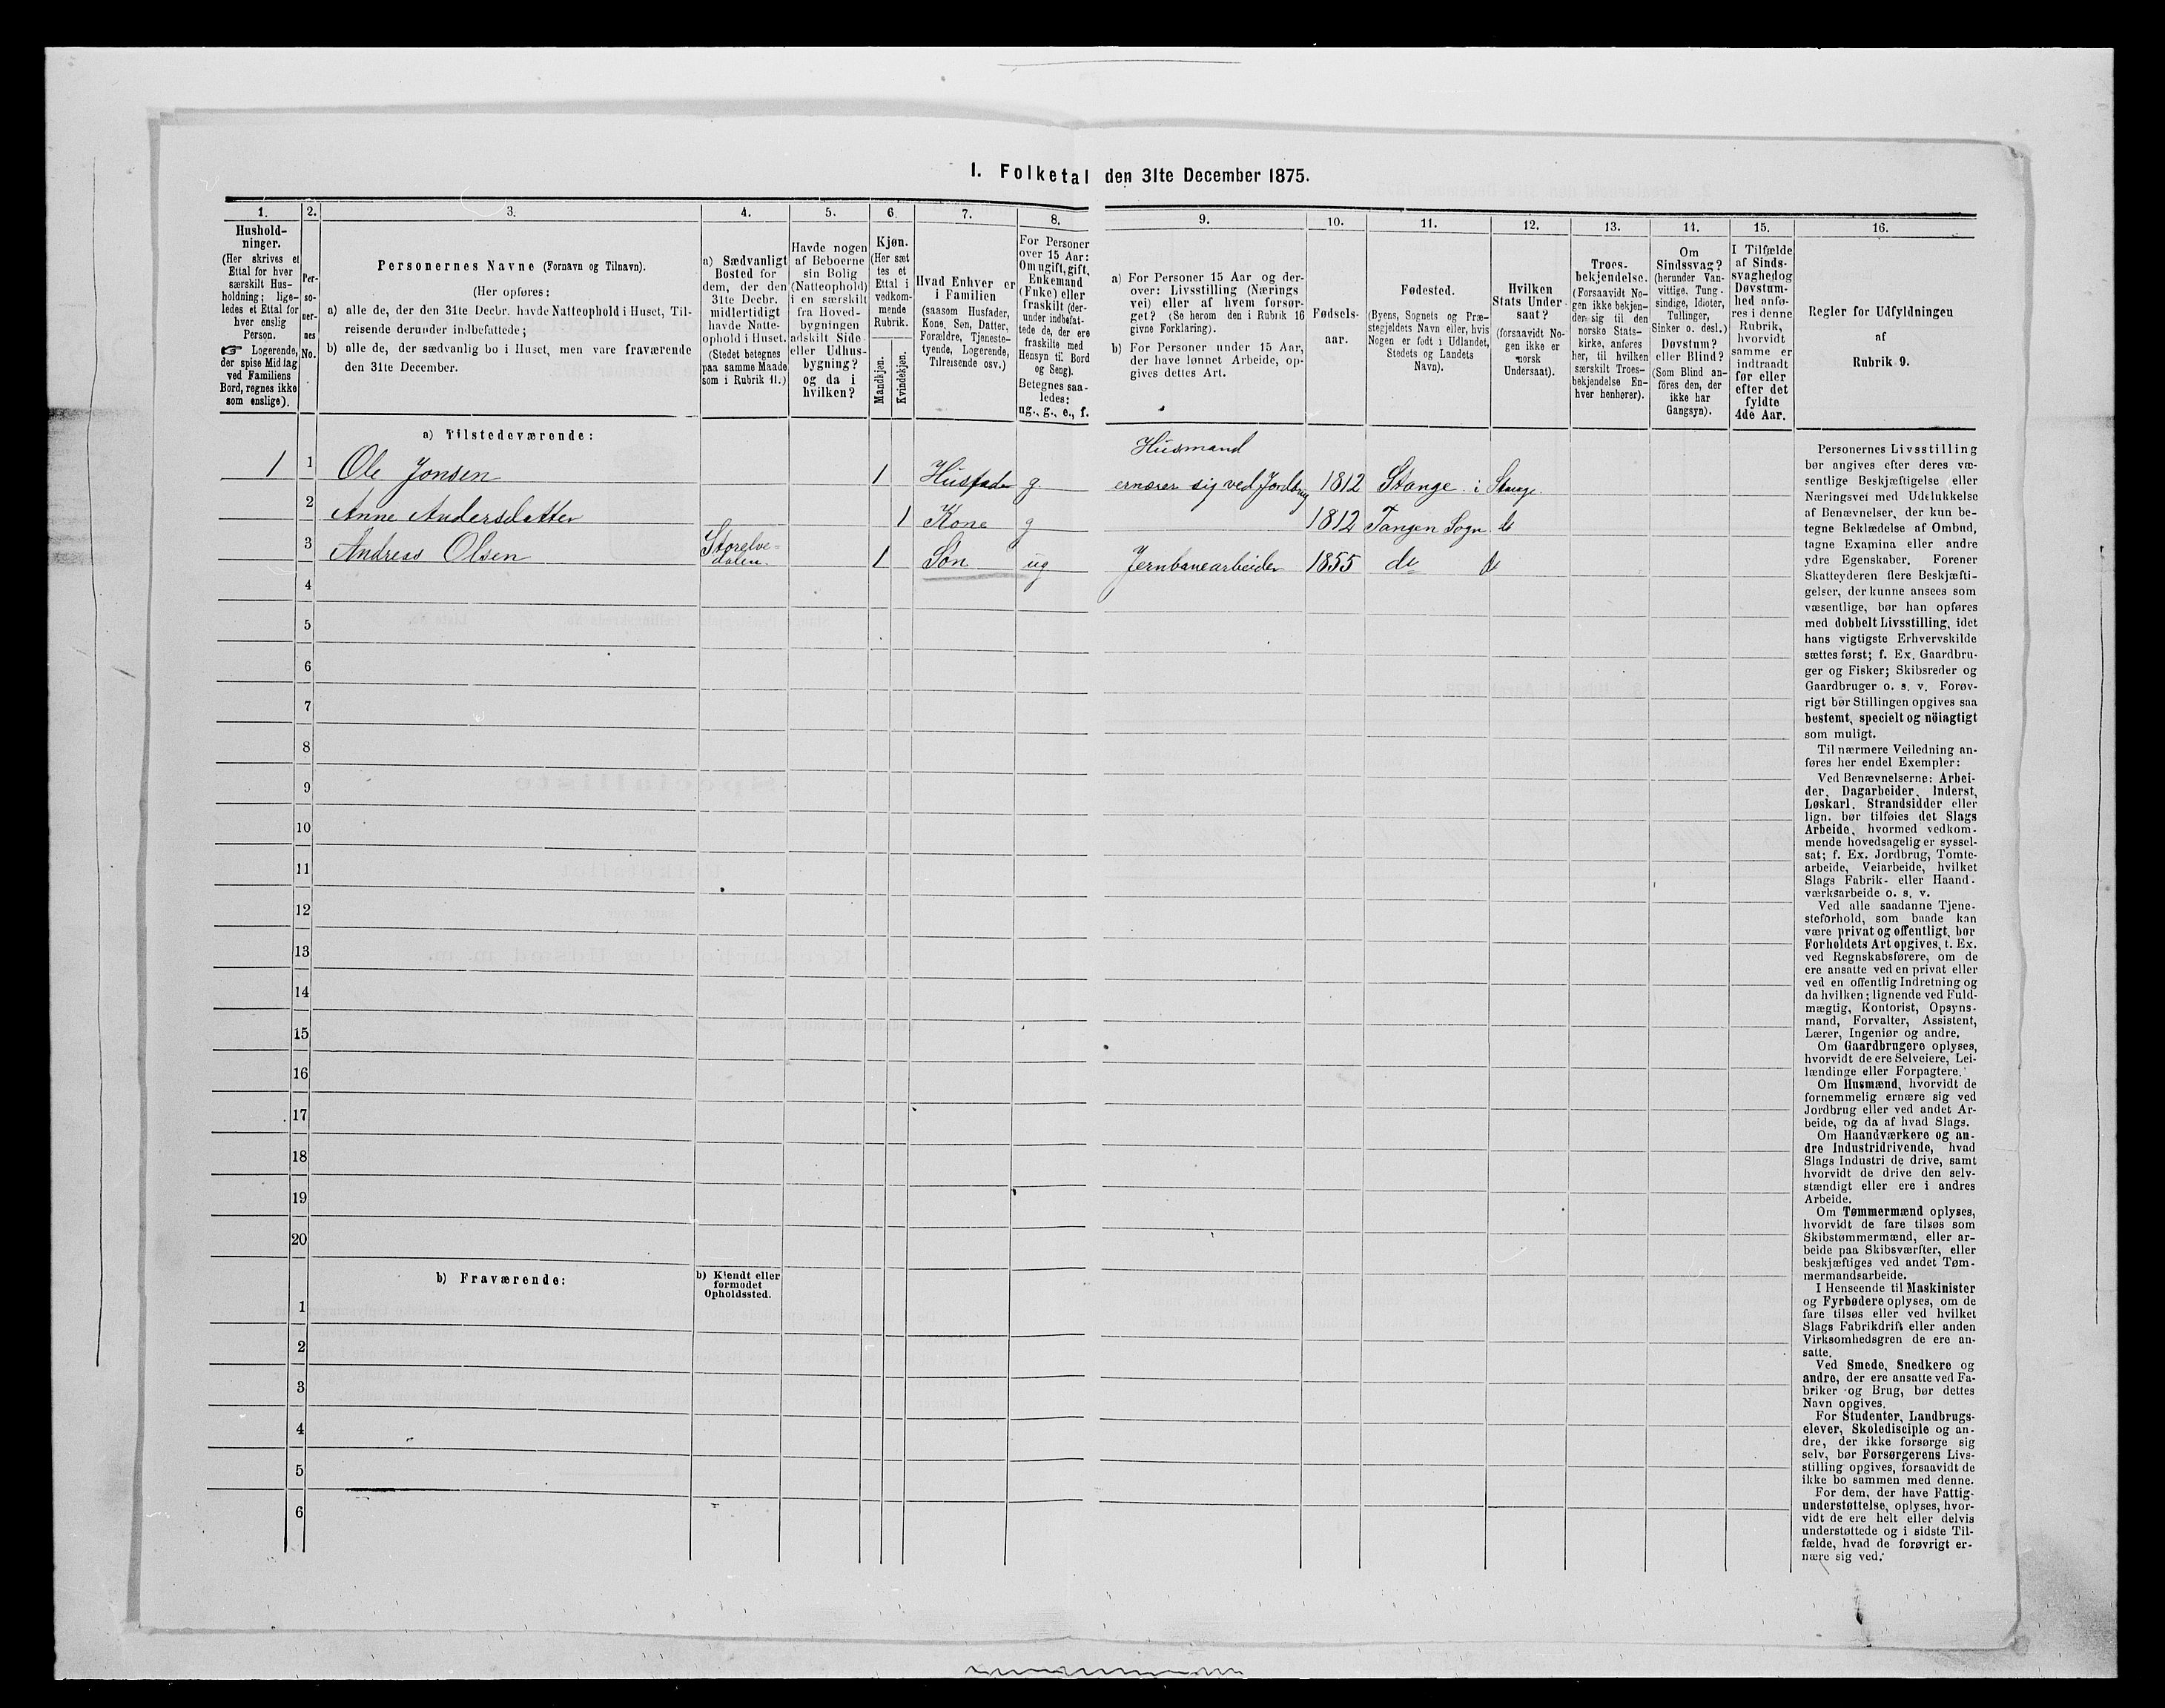 I. Folketal den 31te December 1875.
1. 2. 3. 4. 5. 6. 7. 8. 9. 10. 11. 12. 13. 14. 15. 16.
Hushold-
ninger.
(Her skrives et
Ettal for hver
særskilt Hus-
holdning; lige-
ledes et Ettal for
hver enslig
Person.
☞ Logerende,
der spise Middag
ved Familiens
Bord, regnes ikke
som enslige).
Per-
so-
ner-
nes
No.
Personernes Navne (Fornavn og Tilnavn).
(Her opføres:
a) alle de, der den 31te Decbr. havde Natteophold i Huset, Til-
reisende derunder indbefattede;
b) alle de, der sædvanlig bo i Huset, men vare fraværende
den 31te December.
a) Sædvanligt
Bosted for
dem, der den
31te Decbr.
midlertidigt
havde Natte-
ophold i Huset.
(Stedet betegnes
paa samme Maade
som i Rubrik 11.)
Havde nogen
af Beboerne
sin Bolig
(Natteophold)
i en særskilt
fra Hoved-
bygningen
adskilt Side-
eller Udhus-
bygning?
og da i
hvilken?
Kjøn.
(Her sæt
tes et
Ettal i
vedkom-
mende
Rubrik.
Mandkjøn.
Kvindekjøn.
Hvad Enhver er
i Familien
(saasom Husfader,
Kone, Søn, Datter,
Forældre, Tjeneste-
tyende, Logerende,
Tilreisende osv.)
For Personer
over 15 Aar:
Om ugift, gift,
Enkemand
(Enke) eller
fraskilt (der-
under indbefat-
tede de, der ere
fraskilte med
Hensyn til Bord
og Seng).
Betegnes saa-
ledes:
ug., g., e., f.
a) For Personer 15 Aar og der-
over: Livsstilling (Nærings
vei) eller af hvem forsør-
get? (Se herom den i Rubrik 16
givne Forklaring).
b) For Personer under 15 Aar,
der have lønnet Arbeide, op-
gives dettes Art.
Fødsels-
aar.
Fødested.
(Byens, Sognets og Præ-
stegjeldets Navn eller, hvis
Nogen er født i Udlandet,
Stedets og Landets
Navn).
Hvilken
Stats Under-
saat?
(forsaavidt No-
gen ikke er
norsk
Undersaat).
Troes-
bekjendelse.
(Forsaavidt No-
gen ikke bekjen-
der sig til den
norske Stats-
kirke, anføres
her, til hvilken
særskilt Troes-
bekjendelse En-
hver henhører).
Om
Sindssvag?
(herunder Van-
vittige, Tung-
sindige, Idioter,
Tullinger,
Sinker o. desl.)
Døvstum?
eller Blind?
(Som Blind an-
föres den, der
ikke har
Gangsyn).
I Tilfælde
af Sinds-
svaghed og
Døvstum-
hed anfø-
res i denne
Rubrik,
hvorvidt
samme er
indtraadt
før eller
efter det
fyldte
4de Aar.
Regler for Udfyldningen
af
Rubrik 9.
a) Tilstedeværende:
Husmand
1 1 Ole Jonsen 1 Husfader g. ernærer sig ved Jordbrug 1812 Stange i Stange
2 Anne Andersdatter 1 Kone g 1812 Tangen Sogn do
3 Andreas Olsen Storelve-
dalen. 1 Søn ug Jernbanearbeider 1855 do do
4
5
6
7
8
9
10
11
12
13
14
15
16
17
18
19
20
b) Fraværende:
b) Kjendt eller
formodet
Opholdssted.
1
2
3
4
5
6
Personernes Livsstilling
bør angives efter deres væ-
sentlige Beskjæftigelse eller
Næringsvei med Udelukkelse
af Benævnelser, der kun be-
tegne Beklædelse af Ombud,
tagne Examina eller andre
ydre Egenskaber. Forener
Skatteyderen flere Beskjæfti-
gelser, der kunne ansees som
væsentlige, bør han opføres
med dobbelt Livsstilling, idet
hans vigtigste Erhvervskilde
sættes først; f. Ex. Gaardbru-
ger og Fisker; Skibsreder og
Gaardbruger o. s. v. Forøv-
rigt bør Stillingen opgives saa
bestemt, specielt og nöiagtigt
som muligt.
Til nærmere Veiledning an-
føres her endel Exempler:
Ved Benævnelserne: Arbei-
der, Dagarbeider, Inderst,
Løskarl, Strandsidder eller
lign. bør tilføies det Slags
Arbeide, hvormed vedkom-
mende hovedsagelig er syssel-
sat; f. Ex. Jordbrug, Tomte-
arbeide, Veiarbeide, hvilket
Slags Fabrik- eller Haand-
værksarbeide o. s. v.
Ved alle saadanne Tjene-
steforhold, som baade kan
være privat og offentligt, bør
Forholdets Art opgives, t. Ex.
ved Regnskabsførere, om de
ere ansatte ved en privat eller
ved en offentlig Indretning og
da hvilken; lignende ved Fuld-
mægtig, Kontorist, Opsyns-
mand, Forvalter, Assistent,
Lærer, Ingeniør og andre.
Om Gaardbrugere oplyses,
hvorvidt de ere Selveiere, Lei-
lændinge eller Forpagtere.
Om Husmænd, hvorvidt de
fornemmelig ernære sig ved
Jordbrug eller ved andet Ar-
beide, og da af hvad Slags.
Om Haandværkere og an-
dre Industridrivende, hvad
Slags Industri de drive, samt
hvorvidt de drive den selv-
stændigt eller ere i andres
Arbeide.
Om Tømmermænd oplyses,
hvorvidt de fare tilsøs som
Skibstømmermænd, eller ar-
beide paa Skibsværfter, eller
beskjæftiges ved andet Tøm-
mermandsarbeide.
I Henseende til Maskinister
og Fyrbødere oplyses, om de
fare tilsøs eller ved hvilket
Slags Fabrikdrift eller anden
Virksomhedsgren de ere an-
satte.
Ved Smede, Snedkere og
andre, der ere ansatte ved Fa-
briker og Brug, bør dettes
Navn opgives.
For Studenter, Landbrugs-
elever, Skoledisciple og an-
dre, der ikke forsørge sig
selv, bør Forsørgerens Livs-
stilling opgives, forsaavidt de
ikke bo sammen med denne.
For dem, der have Fattig-
understøttelse, oplyses, hvor-
vidt de ere helt eller delvis
understøttede og i sidste Til-
fælde, hvad de forøvrigt er-
nære sig ved.